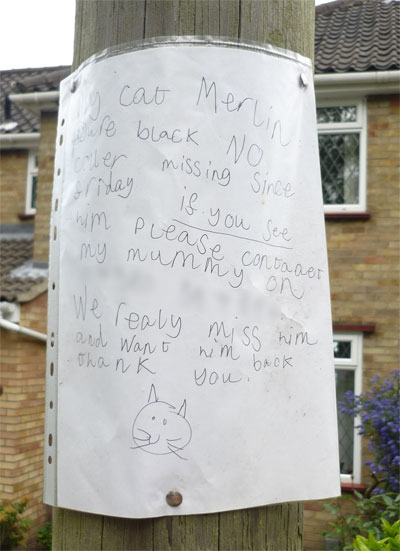 My cat Merlin
pure black NO
coller missing since
friday if you see
him please contacet
my mummy on
We realy miss him
and want him back
thank you.